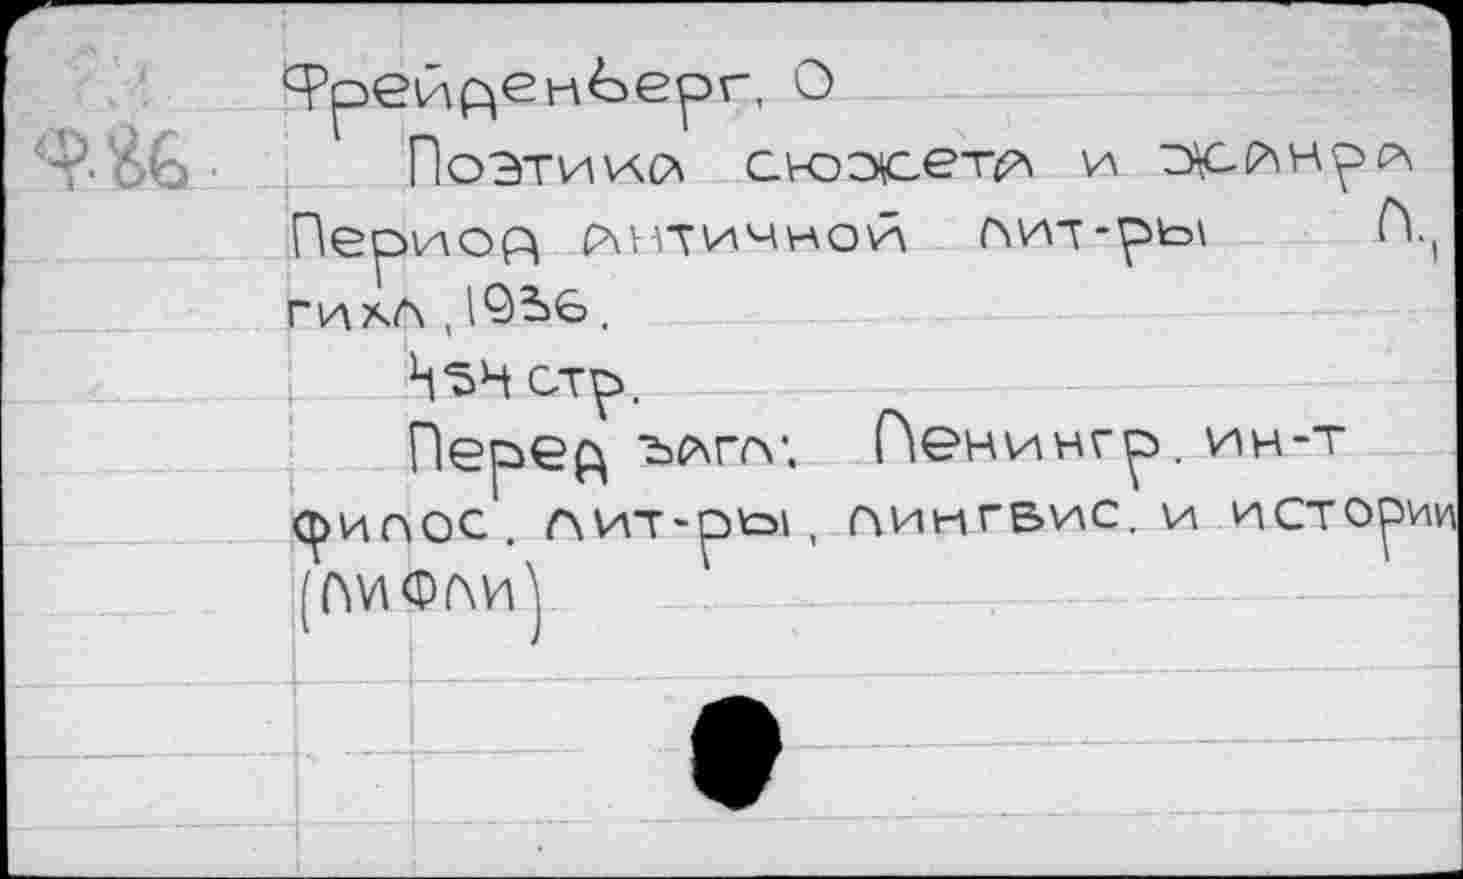 Фрейденберг, О
Ф.86.
Поэтика сюжета и жанра
Период античной лит-ры Л.,
гихл, 1936.
454 стр.
Перед загл: Ленингр. ин-т
филос. лит-ры, лингвис. и истории
(ЛИФЛИ)